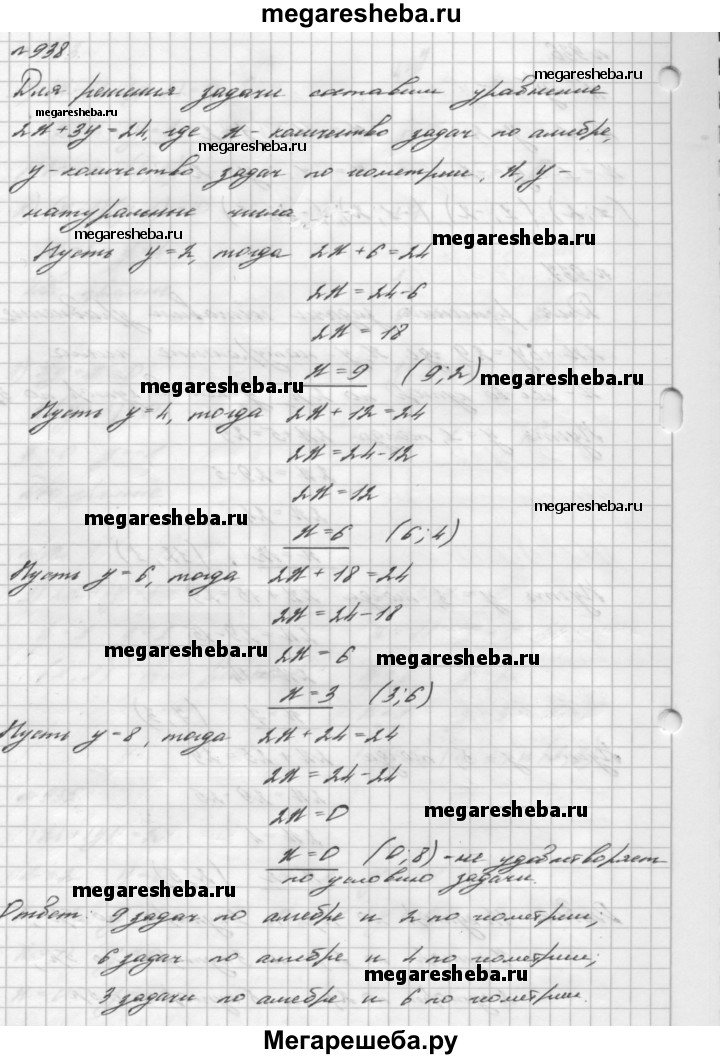 megaresheba.ru
№938
Для решения задачи составим уравнение
megaresheba.ru
megaresheba.ru
2x+3y=24, где x - количество задач по алгебре,
megaresheba.ru
y - количество задач по геометрии, x, y -
натуральные числа.
megaresheba.ru
megaresheba.ru
Пусть y=2, тогда 2x+6=24
2x=24-6
2x=18
x=9 (9;2)
megaresheba.ru
megaresheba.ru
Пусть y=4, тогда 2x+12=24
2x=24-12
2x=12
megaresheba.ru
megaresheba.ru
x=6 (6;4)
Пусть y=6, тогда 2x+18=24
2x=24-18
megaresheba.ru
2x=6
megaresheba.ru
x=3 (3;6)
Пусть y=8, тогда 2x+24=24
2x=24-24
2x=0
megaresheba.ru
x=0 (0;8) - не удовлетворяет
по условию задачи.
megaresheba.ru
Ответ: 9 задач по алгебре и 2 по геометрии;
6 задач по алгебре и 4 по геометрии;
megaresheba.ru
3 задачи по алгебре и 6 по геометрии.
Мегарешеба.ру